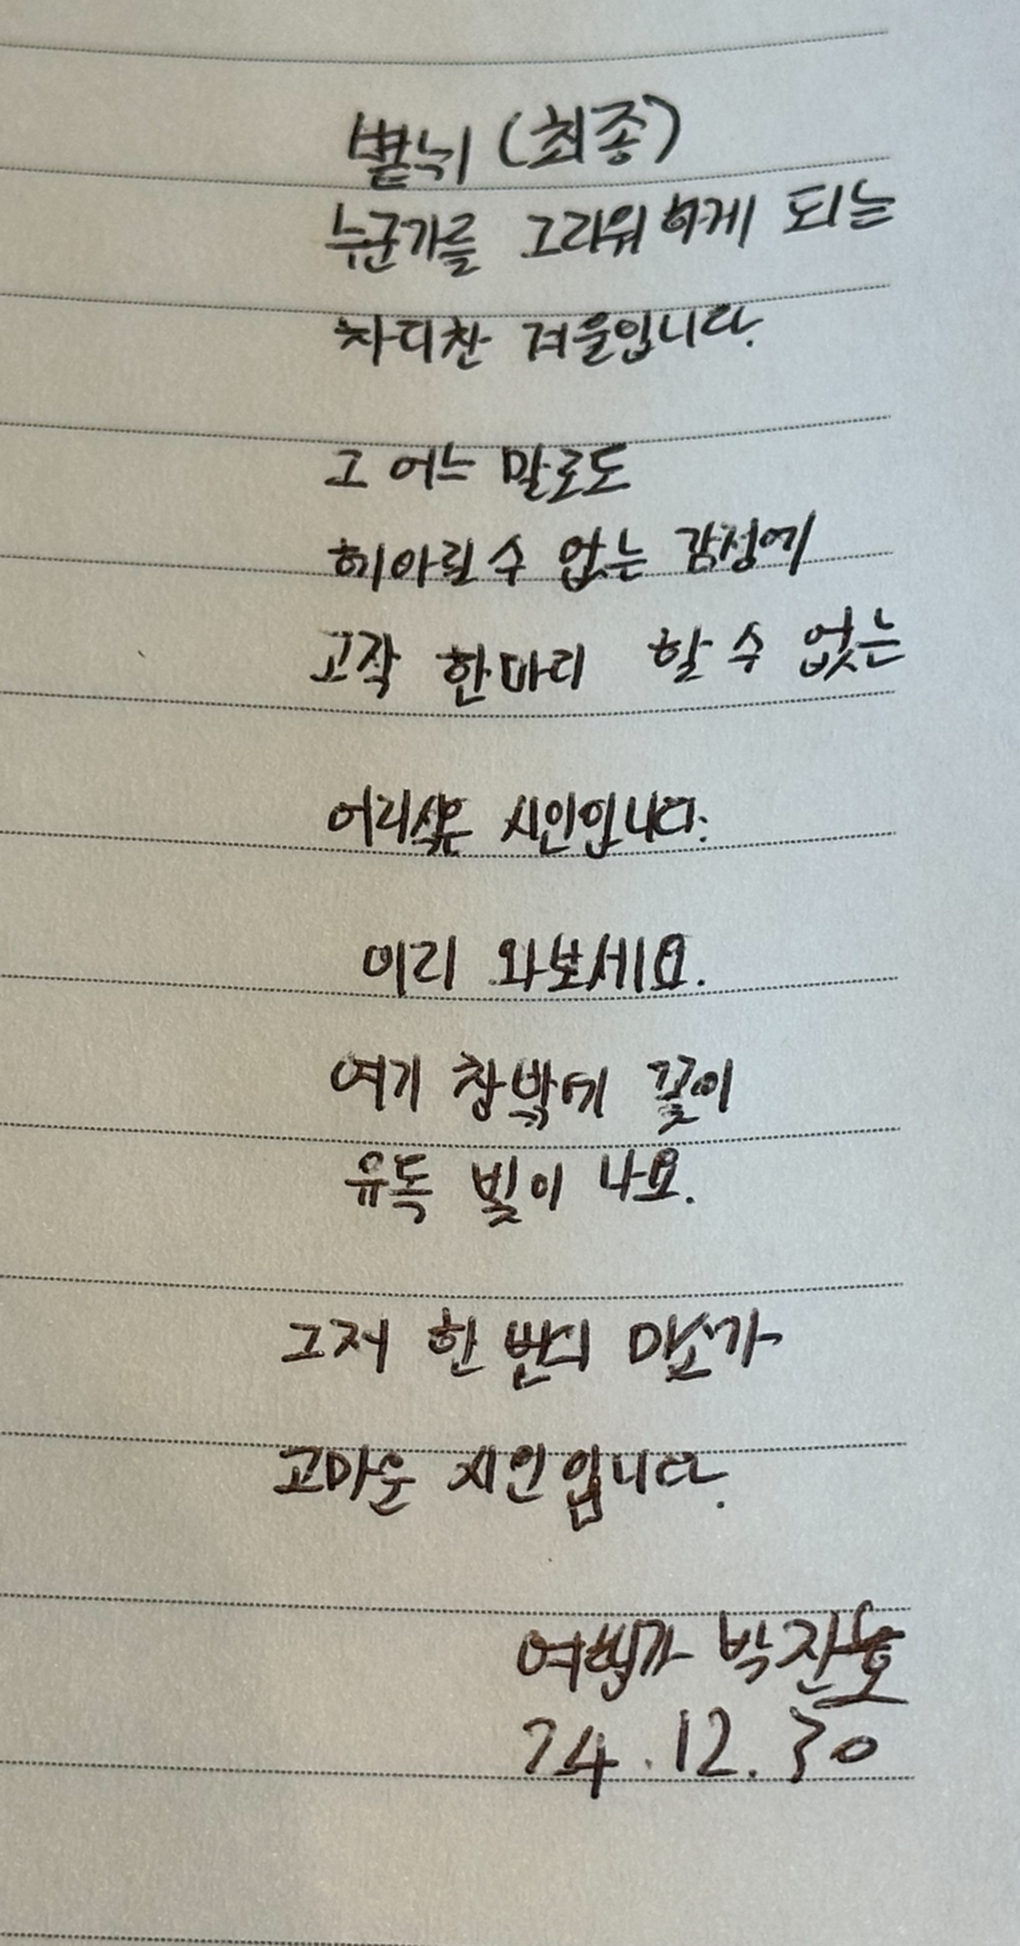 (최종)
누군가를 그리워하게 되는
차디찬 겨울입니다.
그 어느 말로도
헤아릴 수 없는 감정에
고작 한마디 할 수 없는
어리석은 시인입니다.
이리 와보세요.
여기 창밖에 꽃이
유독 빛이 나요.
그저 한 번의 미소가
고마운 시인입니다.
여행가 박찬호
24.12.30